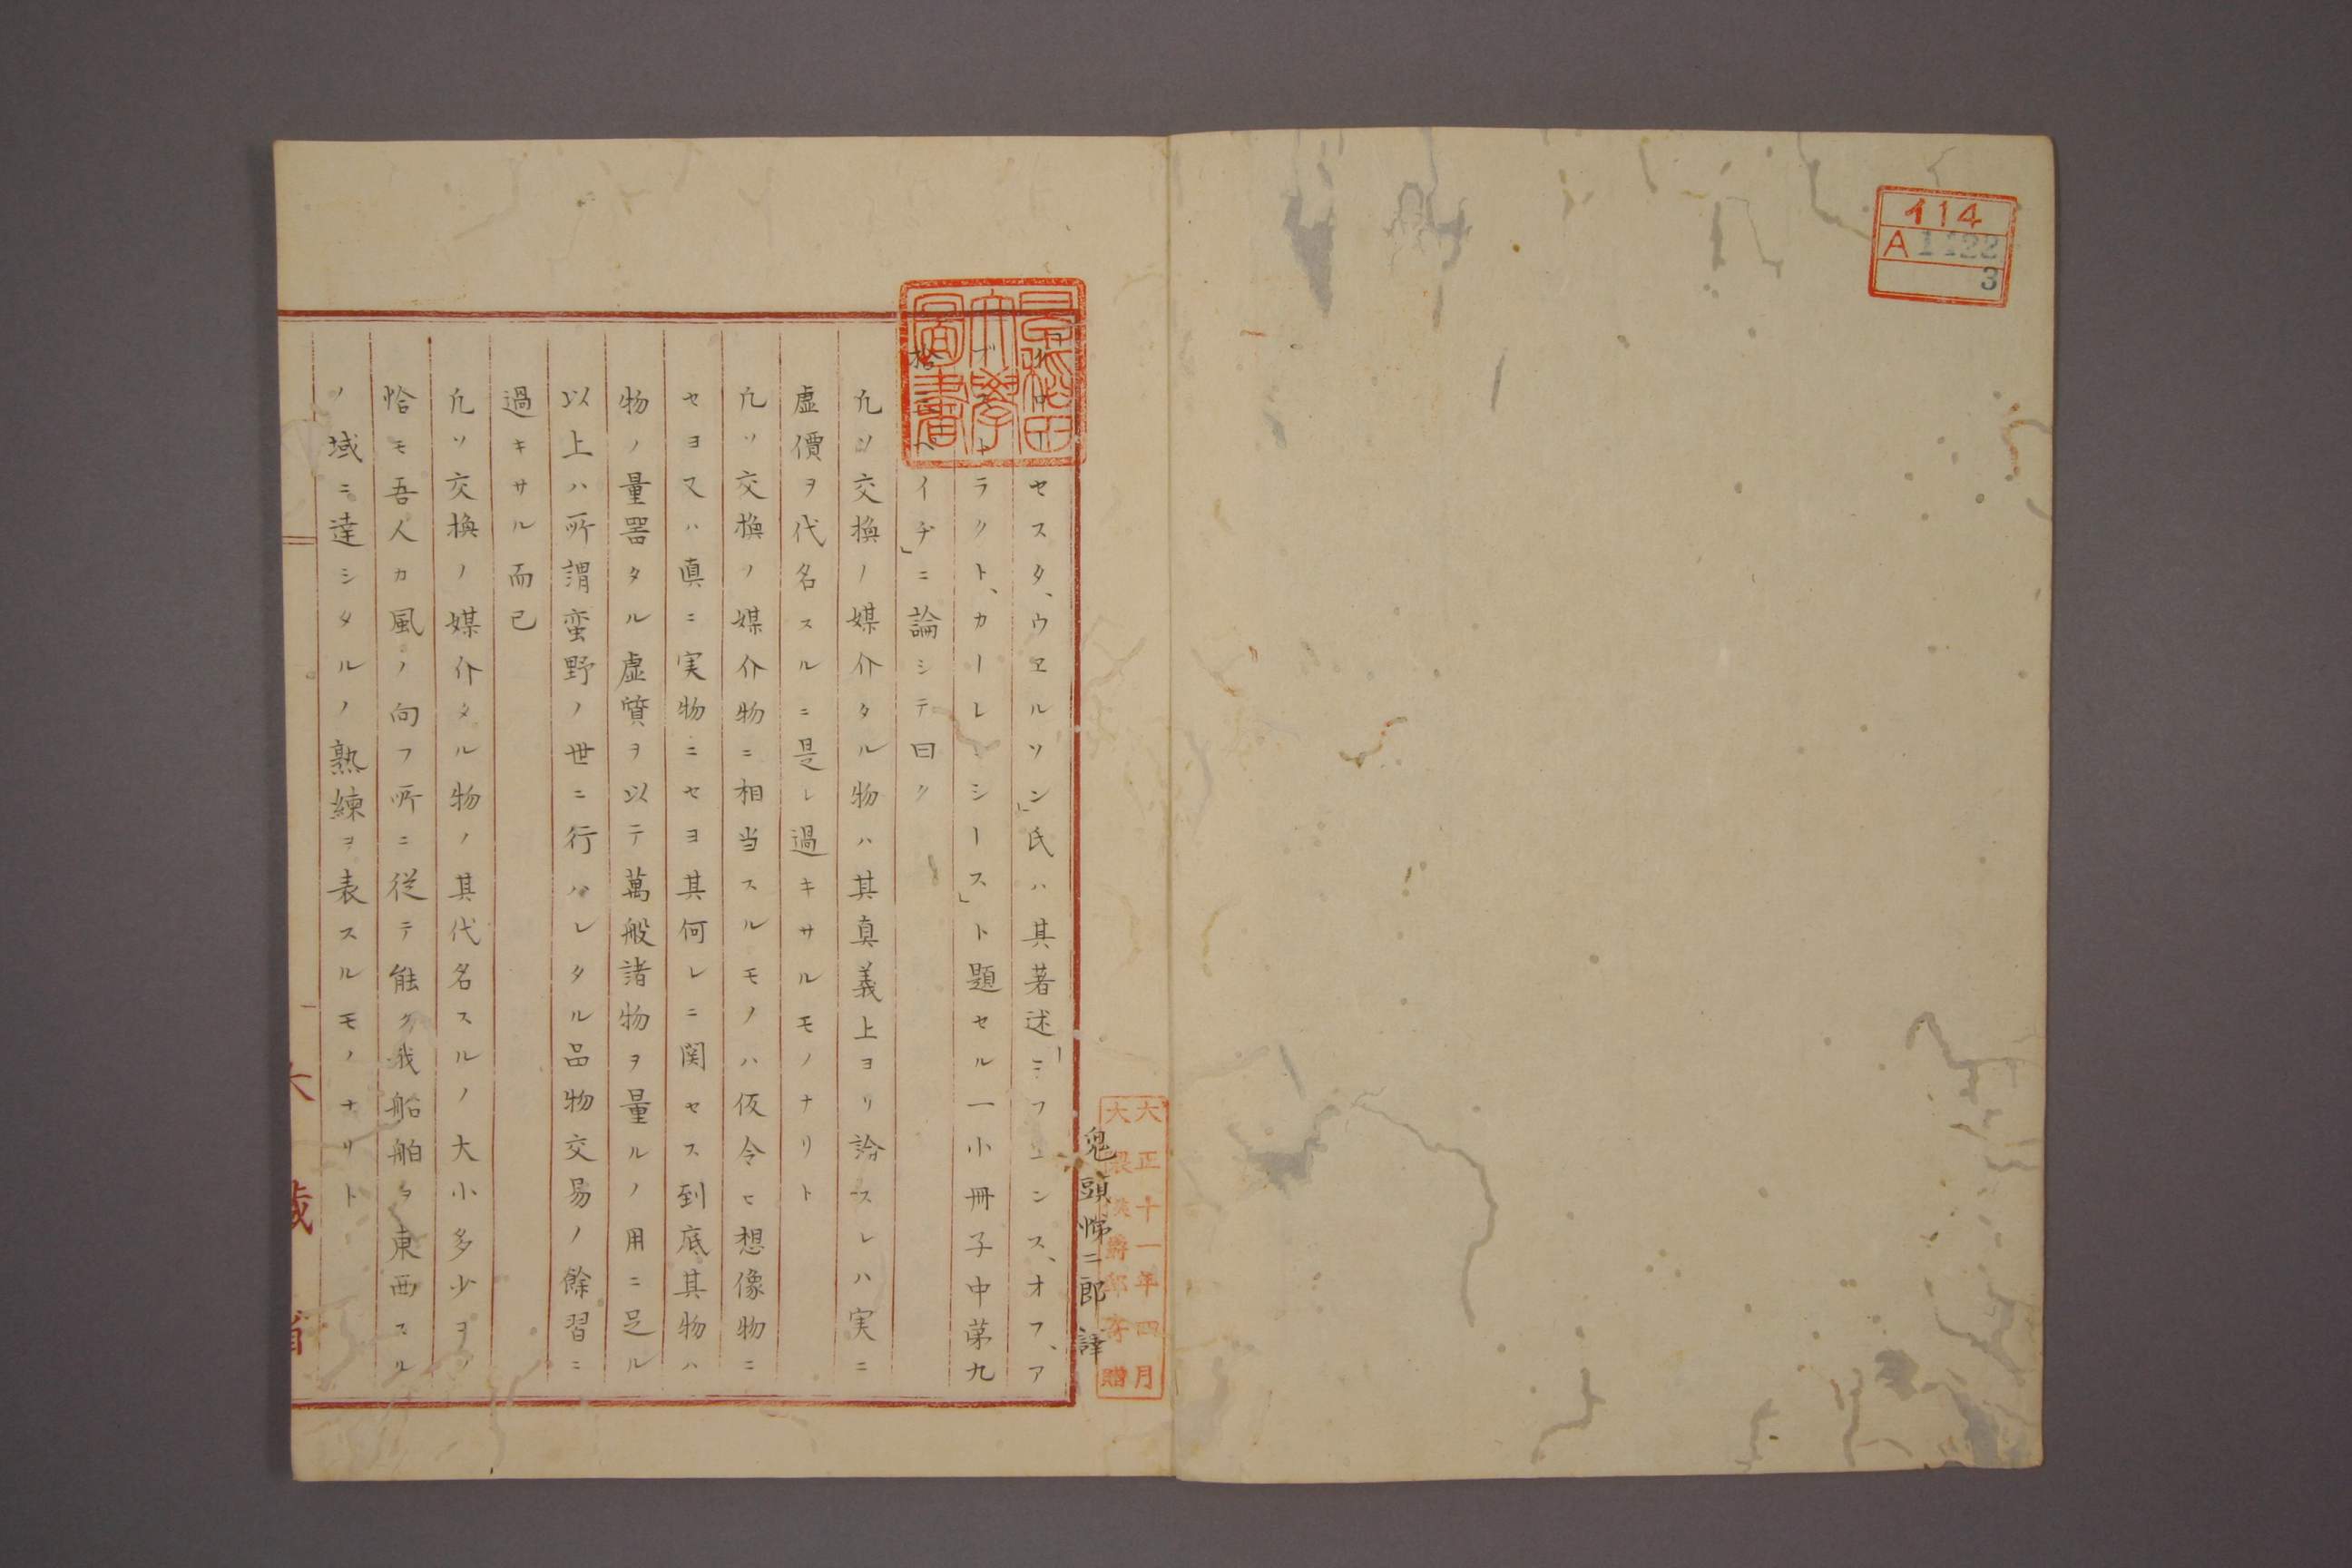 イ14
A 1122
3
早稲田
大學
圖書
大正十一年四月
大隈侯爵邸寄贈
鬼頭悌二郎譯
セスタ、ウヱルソン」氏ハ其著述ニフーンス、オフ、ア
ラクト、カーレンシース」ト題セル一小冊子中苐九
イチ」ニ論シテ曰ク
凢ソ交換ノ媒介タル物ハ其真義上ヨリ論スレハ実ニ
虚價ヲ代名スルニ是レ過キサルモノナリト
凢ソ交換ノ媒介物ニ相当スルモノハ仮令ヒ想像物ニ
セヨ又ハ真ニ実物ニセヨ其何レニ関セス到底其物ハ
物ノ量器タル虚質ヲ以テ萬般諸物ヲ量ルノ用ニ足ル
以上ハ所謂蛮野ノ世ニ行ハレタル品物交易ノ餘習ニ
過キサル而已
凢ソ交換ノ媒介タル物ノ其代名スルノ大小多少ヲ
恰モ吾人カ風ノ向フ所ニ従テ能ク我船舶ヲ東西スル
ノ域ニ達シタルノ熟練ヲ表スルモノナリト
大藏省